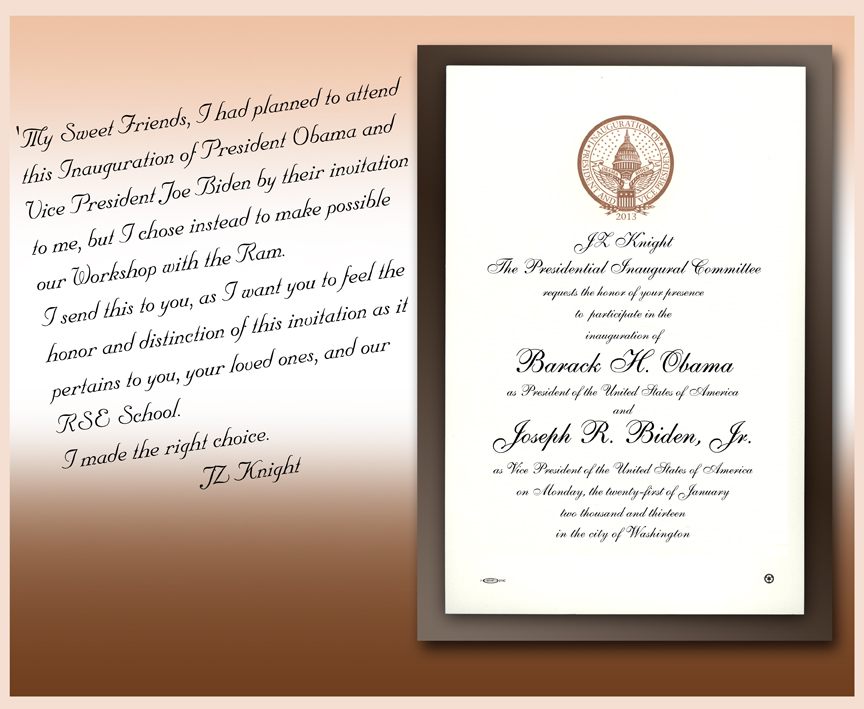 'My Sweet Friends, I had planned to attend
this Inauguration of President Obama and
Vice President Joe Biden by their invitation
to me, but I chose instead to make possible
our Workshop with the Ram.
I send this to you, as I want you to feel the
honor and distinction of this invitation as it
pertains to you, your loved ones, and our
RSE School.
I made the right choice.
JZ Knight
INAUGURATION OF
PRESIDENT AND VICE PRESIDENT
2013
JZ Knight
The Presidential Inaugural Committee
requests the honor of your presence
to participate in the
inauguration of
Barack H. Obama
as President of the United States of America
and
Joseph R. Biden, Jr.
as Vice President of the United States of America
on Monday, the twenty-first of January
two thousand and thirteen
in the city of Washington